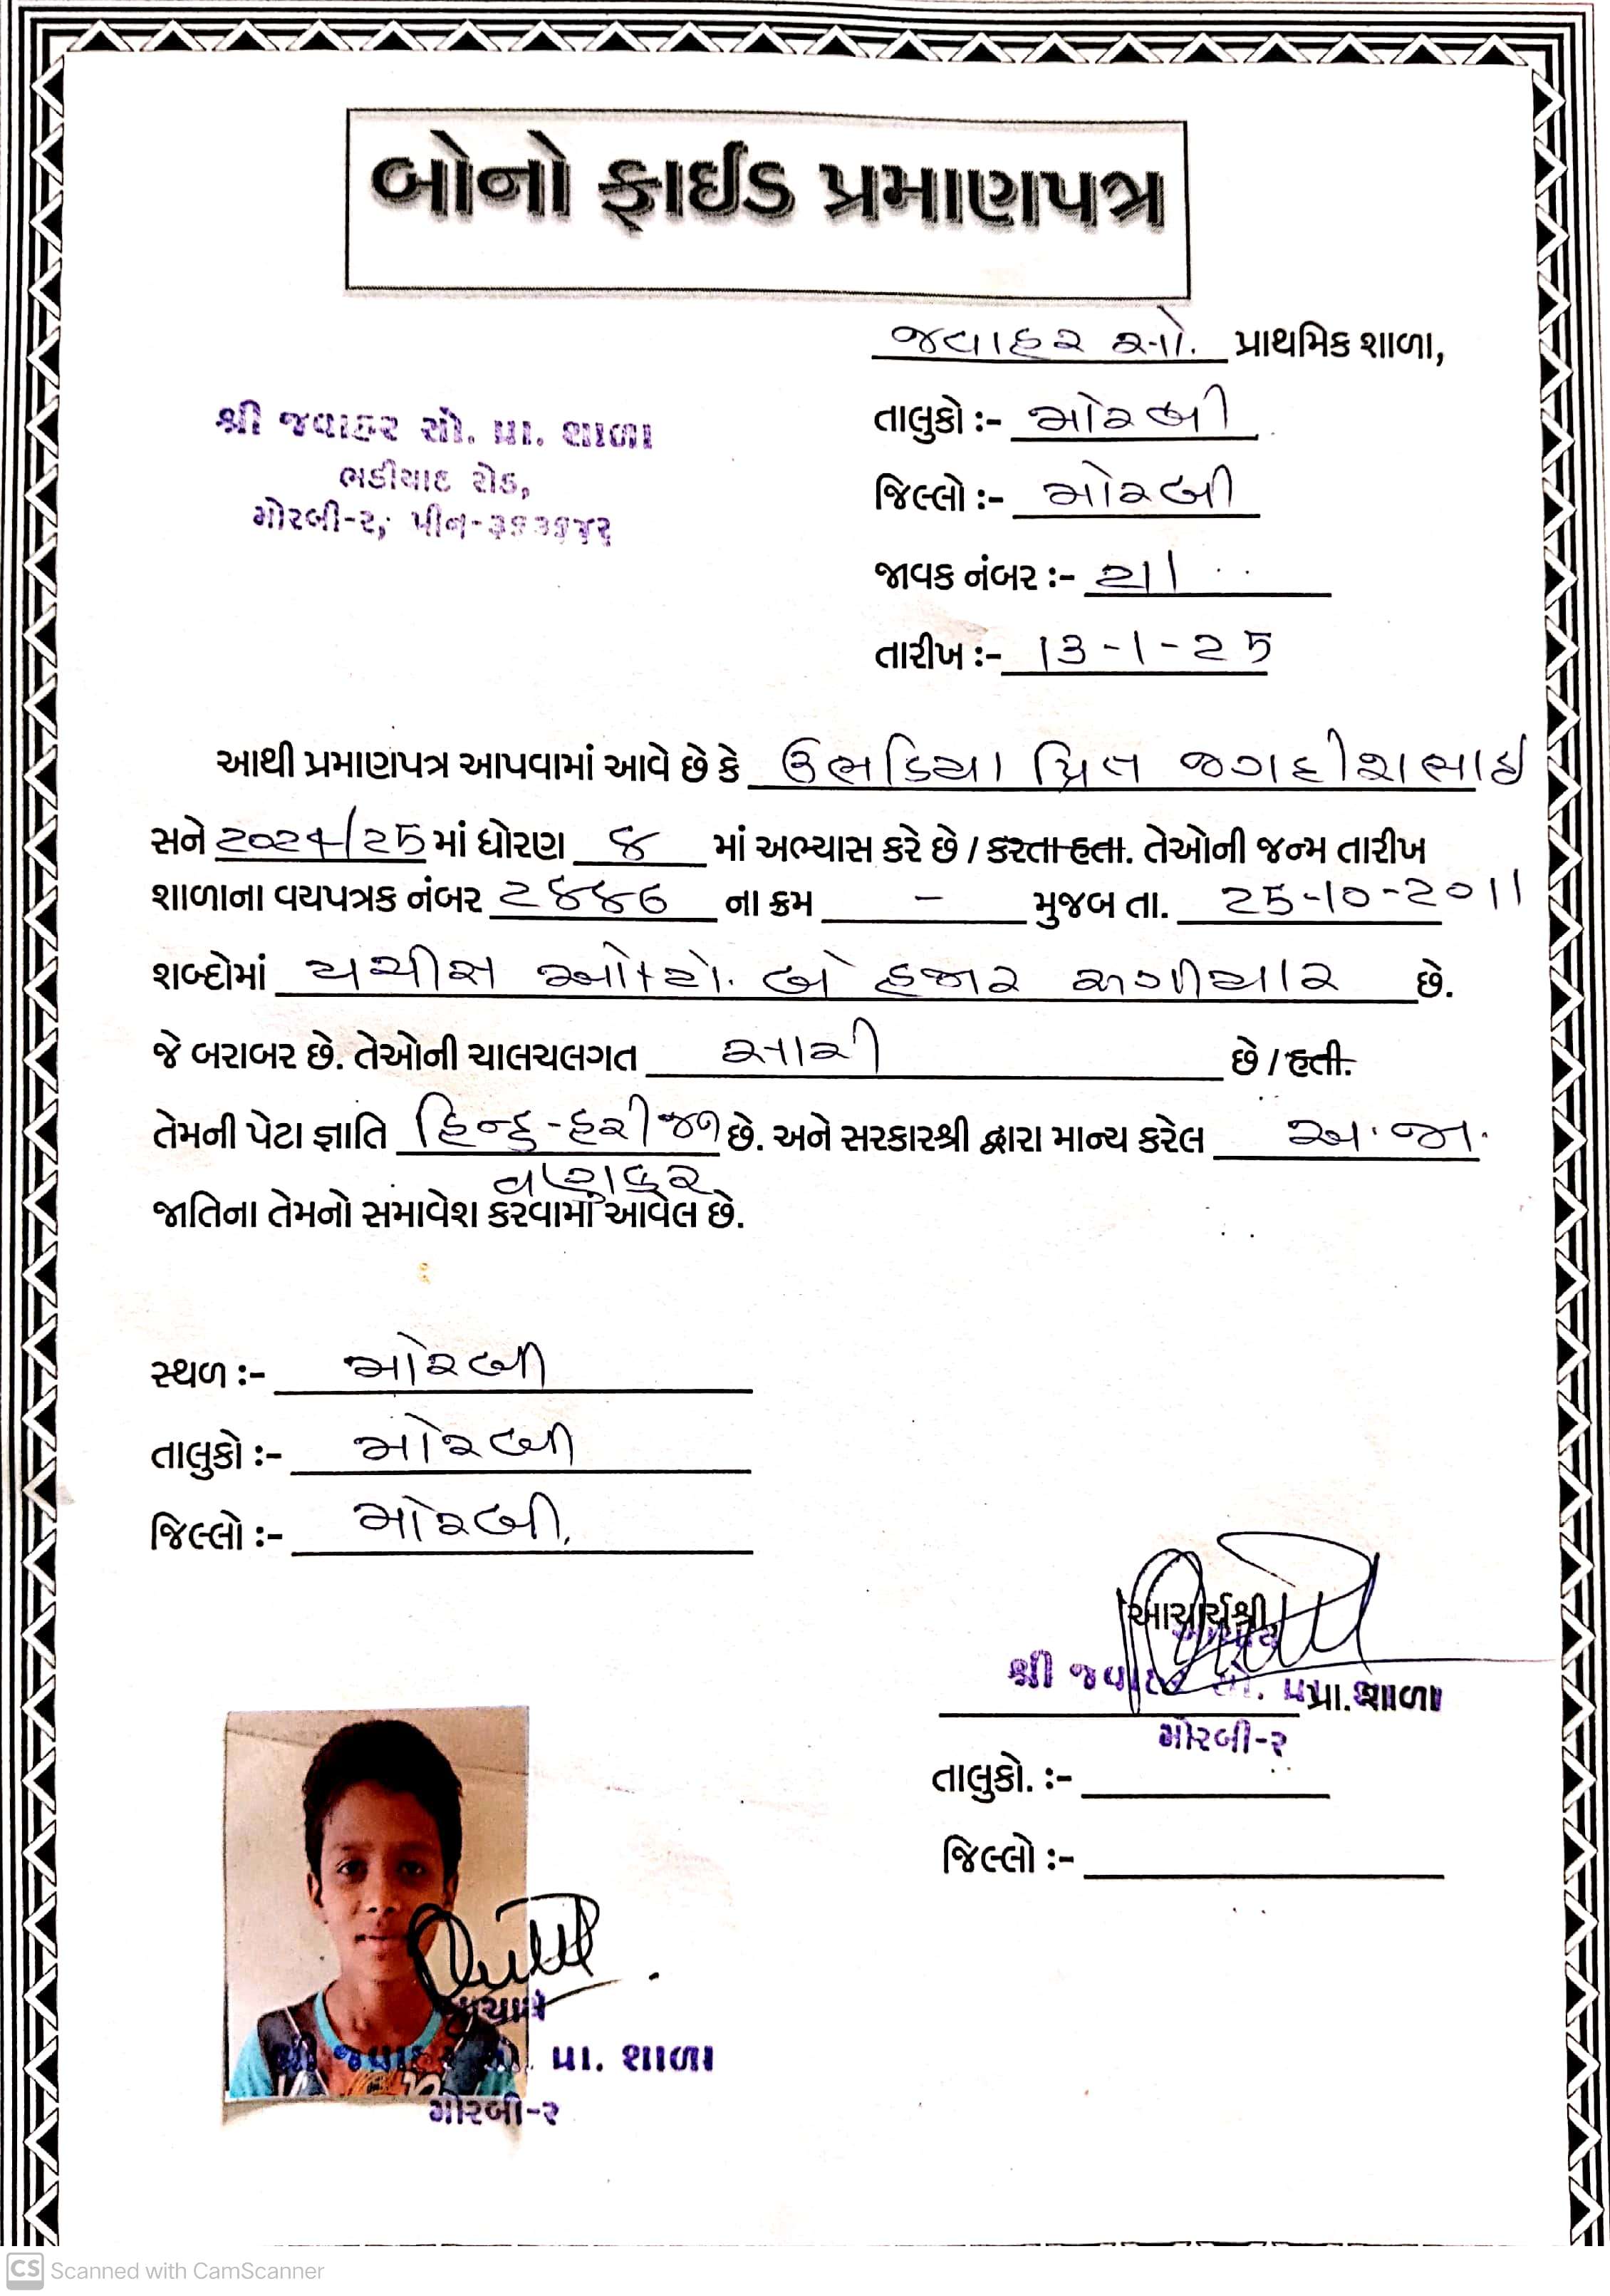 બોનો ફાઈડ પ્રમાણપત્ર
જવાહર સો. પ્રાથમિક શાળા,
શ્રી જવાહર સો. પ્રા. શાળા
ભડીયાદ રોડ,
મોરબી-૨, પીન-૩૬૩૬૪૨
તાલુકો :- મોરબી
જિલ્લો :- મોરબી
જાવક નંબર :-
તારીખ :- 13-1-25
આથી પ્રમાણપત્ર આપવામાં આવે છે કે ઉભડિયા પ્રિત જગદીશભાઈ
સને 2024/25 માં ધોરણ ૪ માં અભ્યાસ કરે છે / કરતા હતા. તેઓની જન્મ તારીખ
શાળાના વયપત્રક નંબર ૨૪૪૬ ના ક્રમ - મુજબ તા. 25-10-2011
શબ્દોમાં પચીસ ઓક્ટો. બે હજાર અગીયાર છે.
જે બરાબર છે. તેઓની ચાલચલગત સારી છે / હતી.
તેમની પેટા જ્ઞાતિ હિન્દુ-હરીજન છે. અને સરકારશ્રી દ્વારા માન્ય કરેલ અ.જા.
વણકર
જાતિના તેમનો સમાવેશ કરવામાં આવેલ છે.
સ્થળ :- મોરબી
તાલુકો :- મોરબી
જિલ્લો :- મોરબી.
આચાર્યશ્રી
આચાર્ય
શ્રી જવાહર સો. પ્રા. શાળા
પ્રા. શાળા
મોરબી-૨
તાલુકો. :-
જિલ્લો :-
આચાર્ય
શ્રી જવાહર સો. પ્રા. શાળા
મોરબી-૨
CS Scanned with CamScanner